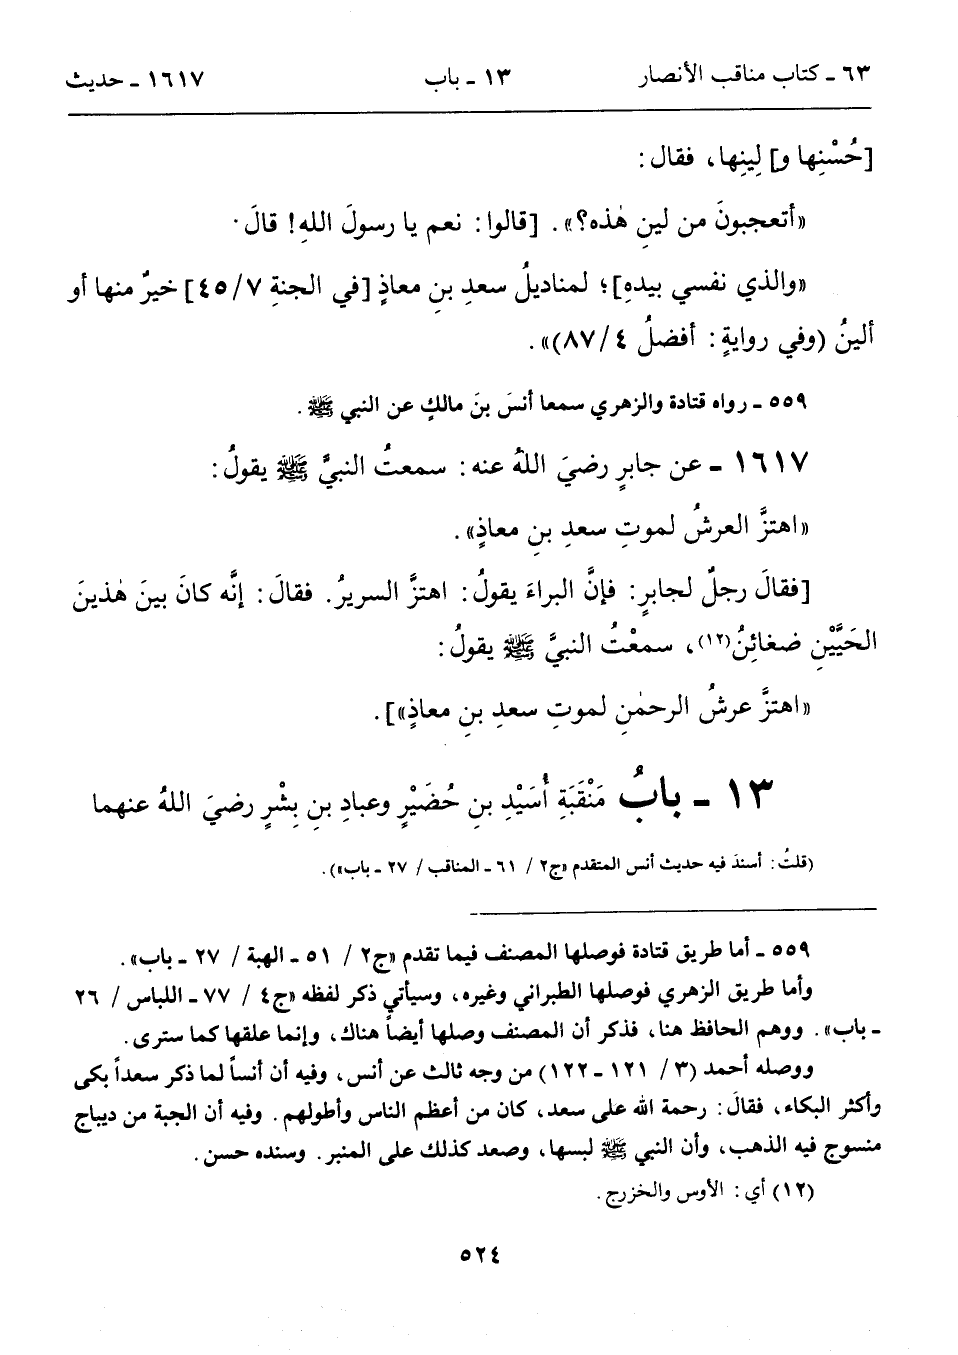 ٦٣ ـ كتاب مناقب الأنصار ١٣ ـ باب ١٦١٧ ـ حديث
[حُسْنِها و] لِينِها، فقال:
«أتعجبونَ من لينِ هٰذه؟». [قالوا: نعم يا رسولَ اللهِ! قالَ٠
«والذي نفسي بيدهِ]؛ لمناديلُ سعدِ بنِ معاذٍ [في الجنةِ ٧/ ٤٥] خيرٌ منها أو
ألينُ (وفي روايةٍ: أفضلُ ٤/ ٨٧)».
٥٥٩ ـ رواه قتادة والزهري سمعا أنسَ بنَ مالكٍ عن النبي ﷺ.
١٦١٧ ـ عن جابرٍ رضيَ اللهُ عنه: سمعتُ النبيَّ ﷺ يقولُ:
«اهتزَّ العرشُ لموتِ سعدِ بنِ معاذٍ».
[فقالَ رجلٌ لجابرٍ: فإنَّ البراءَ يقولُ: اهتزَّ السريرُ. فقالَ: إنَّه كانَ بينَ هٰذينَ
الحَيَّيْنِ ضغائِنُ(١٢)، سمعْتُ النبيَّ ﷺ يقولُ:
«اهتزَّ عرشُ الرحمٰنِ لموتِ سعدِ بنِ معاذٍ»].
١٣ ـ بابُ مَنْقَبَةِ أُسَيْدِ بنِ حُضَيْرٍ وعبادِ بنِ بِشْرٍ رضيَ اللهُ عنهما
(قلتُ: أسندَ فيه حديث أنس المتقدم «ج٢ / ٦١ ـ المناقب / ٢٧ ـ باب»).
٥٥٩ ـ أما طريق قتادة فوصلها المصنف فيما تقدم «ج٢ / ٥١ ـ الهبة / ٢٧ ـ باب».
وأما طريق الزهري فوصلها الطبراني وغيره، وسيأتي ذكر لفظه «ج٤ / ٧٧ ـ اللباس / ٢٦
ـ باب». ووهم الحافظ هنا، فذكر أن المصنف وصلها أيضاً هناك، وإنما علقها كما سترى.
ووصله أحمد (٣/ ١٢١ ـ ١٢٢) من وجه ثالث عن أنس، وفيه أن أنساً لما ذكر سعداً بكى
وأكثر البكاء، فقالَ: رحمة الله على سعد، كان من أعظم الناس وأطولهم. وفيه أن الجبة من ديباج
منسوج فيه الذهب، وأن النبي ﷺ لبسها، وصعد كذلك على المنبر. وسنده حسن.
(١٢) أي: الأوس والخزرج.
٥٢٤